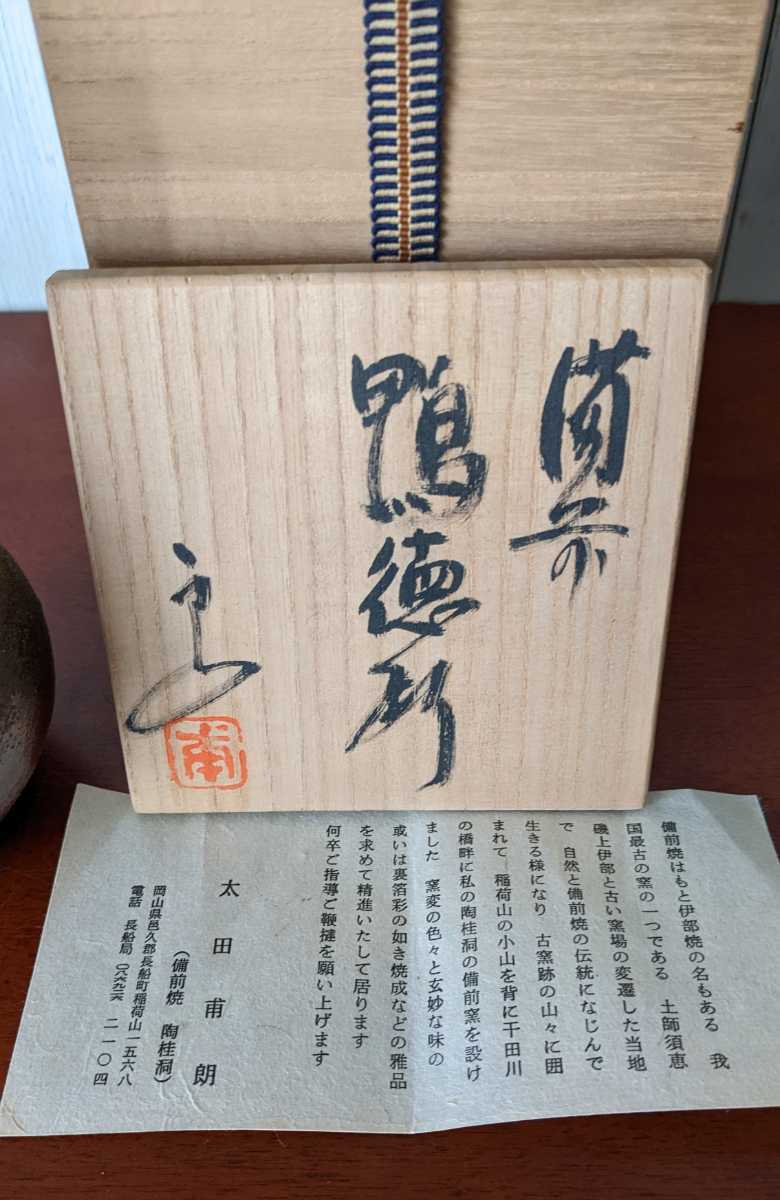 備前
鴨徳利
甫
備前焼はもと伊部焼の名もある 我
国最古の窯の一つである 土師須恵
磯上伊部と古い窯場の変遷した当地
で 自然と備前焼の伝統になじんで
生きる様になり 古窯跡の山々に囲
まれて 稲荷山の小山を背に干田川
の橋畔に私の陶桂洞の備前窯を設け
ました 窯変の色々と玄妙な味の
或いは裏箔彩の如き焼成などの雅品
を求めて精進いたして居ります
何卒ご指導ご鞭撻を願い上げます
太田甫朗
(備前焼 陶桂洞)
岡山県邑久郡長船町稲荷山一五六八
電話 長船局 (〇八六九二六) 二一〇四